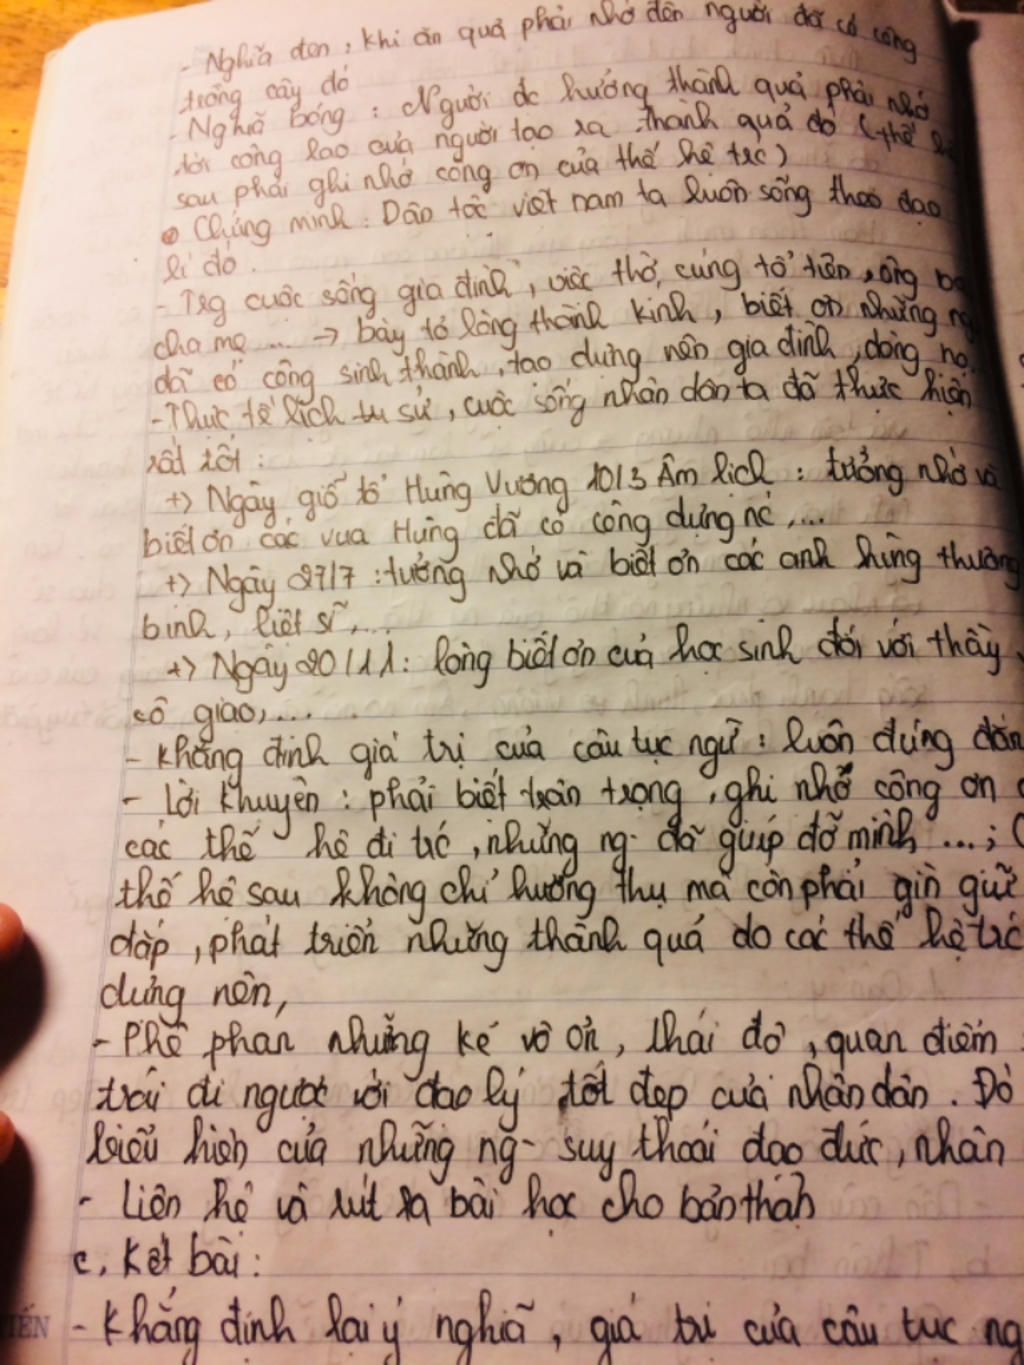 - Nghĩa đen : khi ăn quả phải nhớ đến người đã có công
trồng cây đó
- Nghĩa bóng : Người đc hưởng thành quả phải nhớ
tới công lao của người tạo ra thành quả đó (thế
sau phải ghi nhớ công ơn của thế hệ trc)
Chứng minh : Dân tộc việt nam ta luôn sống theo đạo
lí đó .
- Trg cuộc sống gia đình, việc thờ, cúng tổ tiên, ông bà
cha mẹ ... → bày tỏ lòng thành kính, biết ơn những ng
đã có công sinh thành, tạo dựng nên gia đình, dòng họ.
- Thực tế lịch sử, cuộc sống nhân dân ta đã thực hiện
rất tốt :
+> Ngày giỗ tổ Hùng Vương 10/3 Âm lịch : tưởng nhớ và
biết ơn các vua Hùng đã có công dựng nc,...
+> Ngày 27/7 : tưởng nhớ và biết ơn các anh hùng thương
binh, liệt sĩ,...
+> Ngày 20/11 : lòng biết ơn của học sinh đối với thầy,
cô giáo,...
- khẳng định giá trị của câu tục ngữ : luôn đúng đắn
- Lời khuyên : phải biết trân trọng, ghi nhớ công ơn
các thế hệ đi trc, những ng- đã giúp đỡ mình ...; (
thế hệ sau không chỉ hưởng thụ mà còn phải gìn giữ
đắp, phát triển những thành quả do các thế hệ trc
dựng nên,
- Phê phán những kẻ vô ơn, thái độ, quan điểm
trái đi ngược với đạo lý tốt đẹp của nhân dân. Đó
biểu hiện của những ng- suy thoái đạo đức, nhân
- Liên hệ và rút ra bài học cho bản thân
c, Kết bài :
- Khẳng định lại ý nghĩa, giá trị của câu tục ng